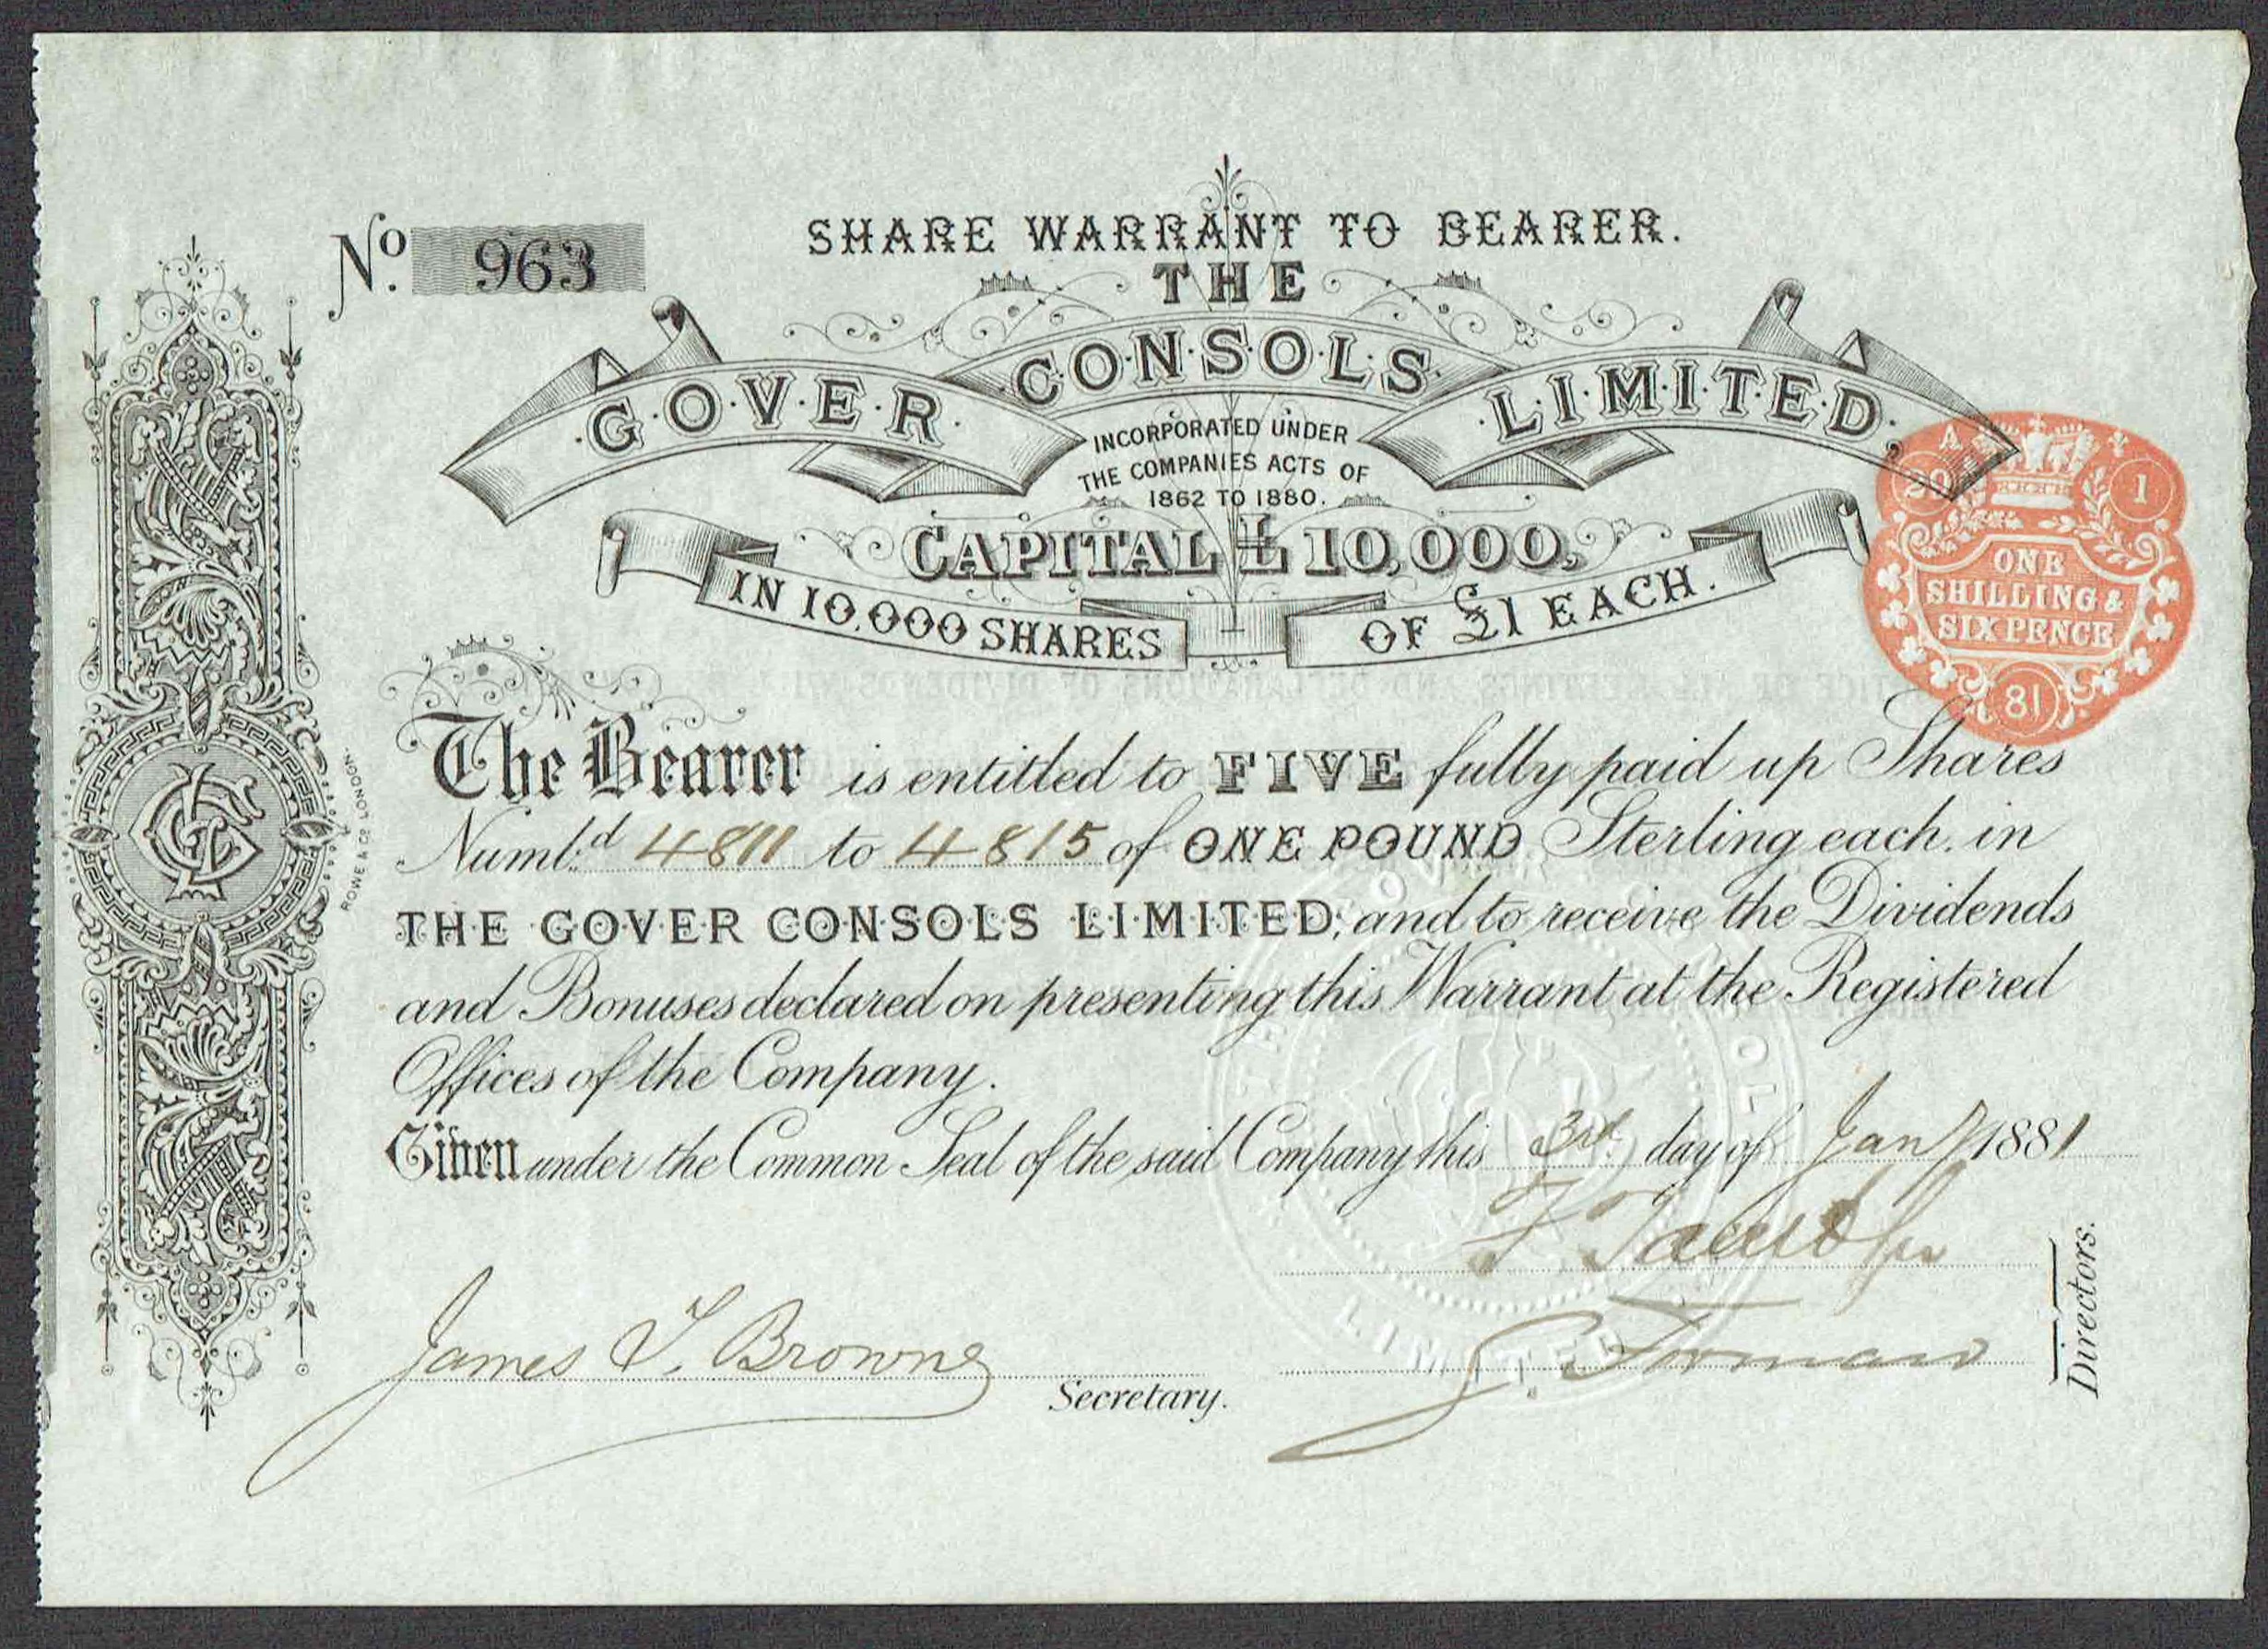 No. 963
SHARE WARRANT TO BEARER.
THE
GOVER CONSOLS LIMITED,
INCORPORATED UNDER
THE COMPANIES ACTS OF
1862 TO 1880.
CAPITAL £10,000,
IN 10,000 SHARES OF £1 EACH.
A
29 1
ONE
SHILLING &
SIXPENCE
81
The Bearer is entitled to FIVE fully paid up Shares
Numb:d 4811 to 4815 of ONE POUND Sterling each, in
THE GOVER CONSOLS LIMITED, and to receive the Dividends
and Bonuses declared on presenting this Warrant at the Registered
Offices of the Company.
Given under the Common Seal of the said Company this 3rd day of Jany 1881
James T. Browne
Secretary.
Directors.
ROWE & CO LONDON.
LIMITED